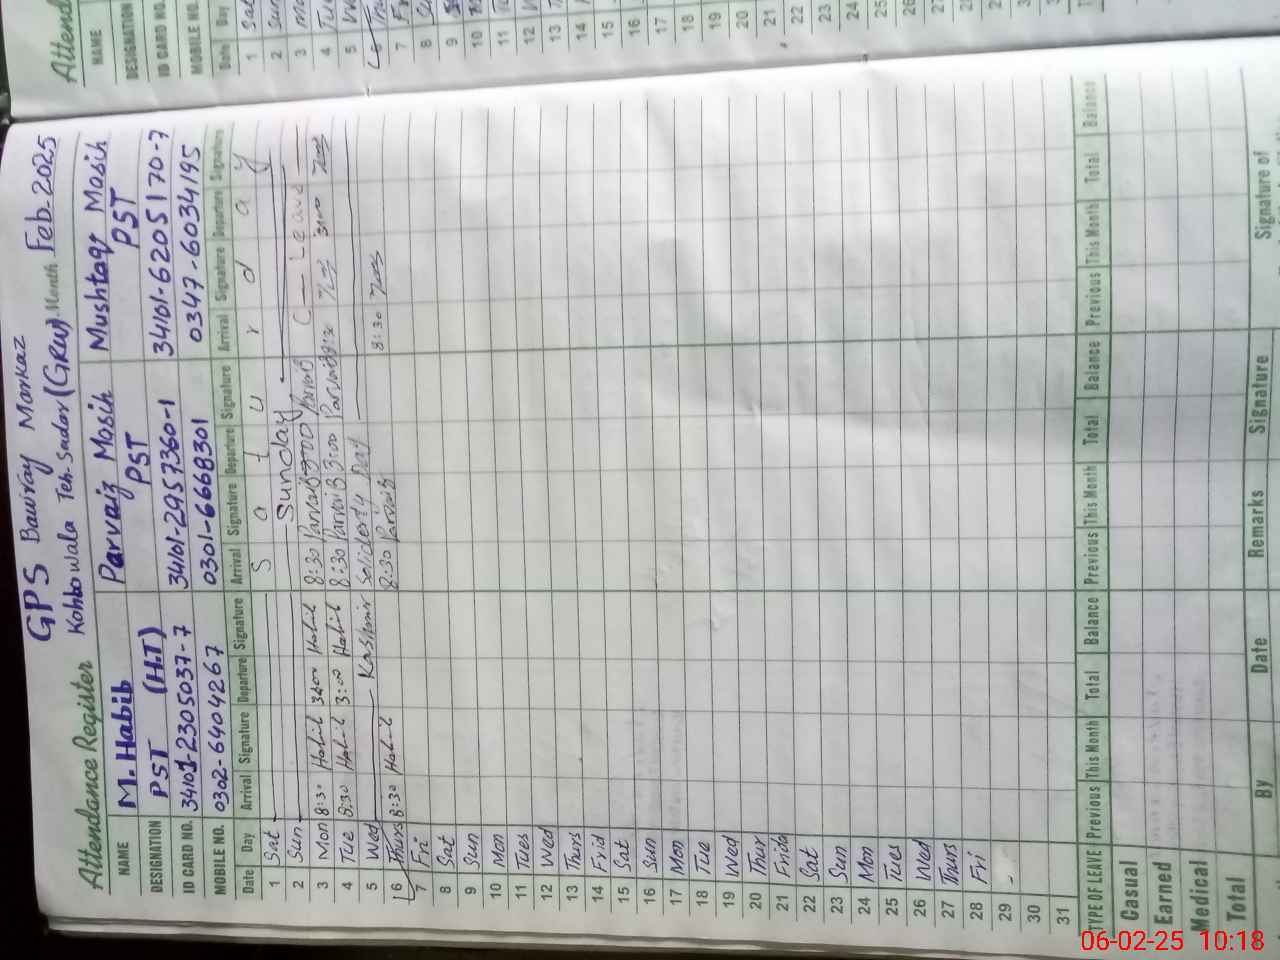 GPS Bawray Markaz
Attendance Register Kohlowala Teh. Sadar (GRW) Month Feb. 2025
NAME M. Habib Parvaiz Masih Mushtaq Masih
DESIGNATION PST (H.T) PST PST
ID CARD NO. 34101-2305037-7 34101-2957360-1 34101-6205170-7
MOBILE NO. 0302-6404267 0301-6668301 0347-6034195
Date Day Arrival Signature Departure Signature Arrival Signature Departure Signature Arrival Signature Departure Signature
1 Sat S a t u r d a y
2 Sun Sunday
3 Mon 8:30 Habib 3:00 Habib 8:30 Parvaiz 3:00 Parvaiz Leave
4 Tue 8:30 Habib 3:00 Habib 8:30 Parvaiz 3:00 Parvaiz 8:30 3:00
5 Wed Kashmir Soliderty Day
6 Thurs 8:30 Habib 8:30 Parvaiz 8:30
7 Fri
8 Sat
9 Sun
10 Mon
11 Tues
12 Wed
13 Thurs
14 Frid
15 Sat
16 Sun
17 Mon
18 Tue
19 Wed
20 Thur
21 Frida
22 Sat
23 Sun
24 Mon
25 Tues
26 Wed
27 Thurs
28 Fri
29 -
30
31
TYPE OF LEAVE Previous This Month Total Balance Previous This Month Total Balance Previous This Month Total Balance
Casual
Earned
Medical
Total
By Date Remarks Signature Signature of
Attend
NAME
DESIGNATION
ID CARD NO.
MOBILE NO.
Date Day
1 Sat
2 Sun
3 Mo
4 Tue
5 We
6 Thu
7 Fr
8
9
10
11
12
13
14
15
16
17
18
19
20
21
22
23
24
25
26
27
28
29
30
06-02-25 10:18